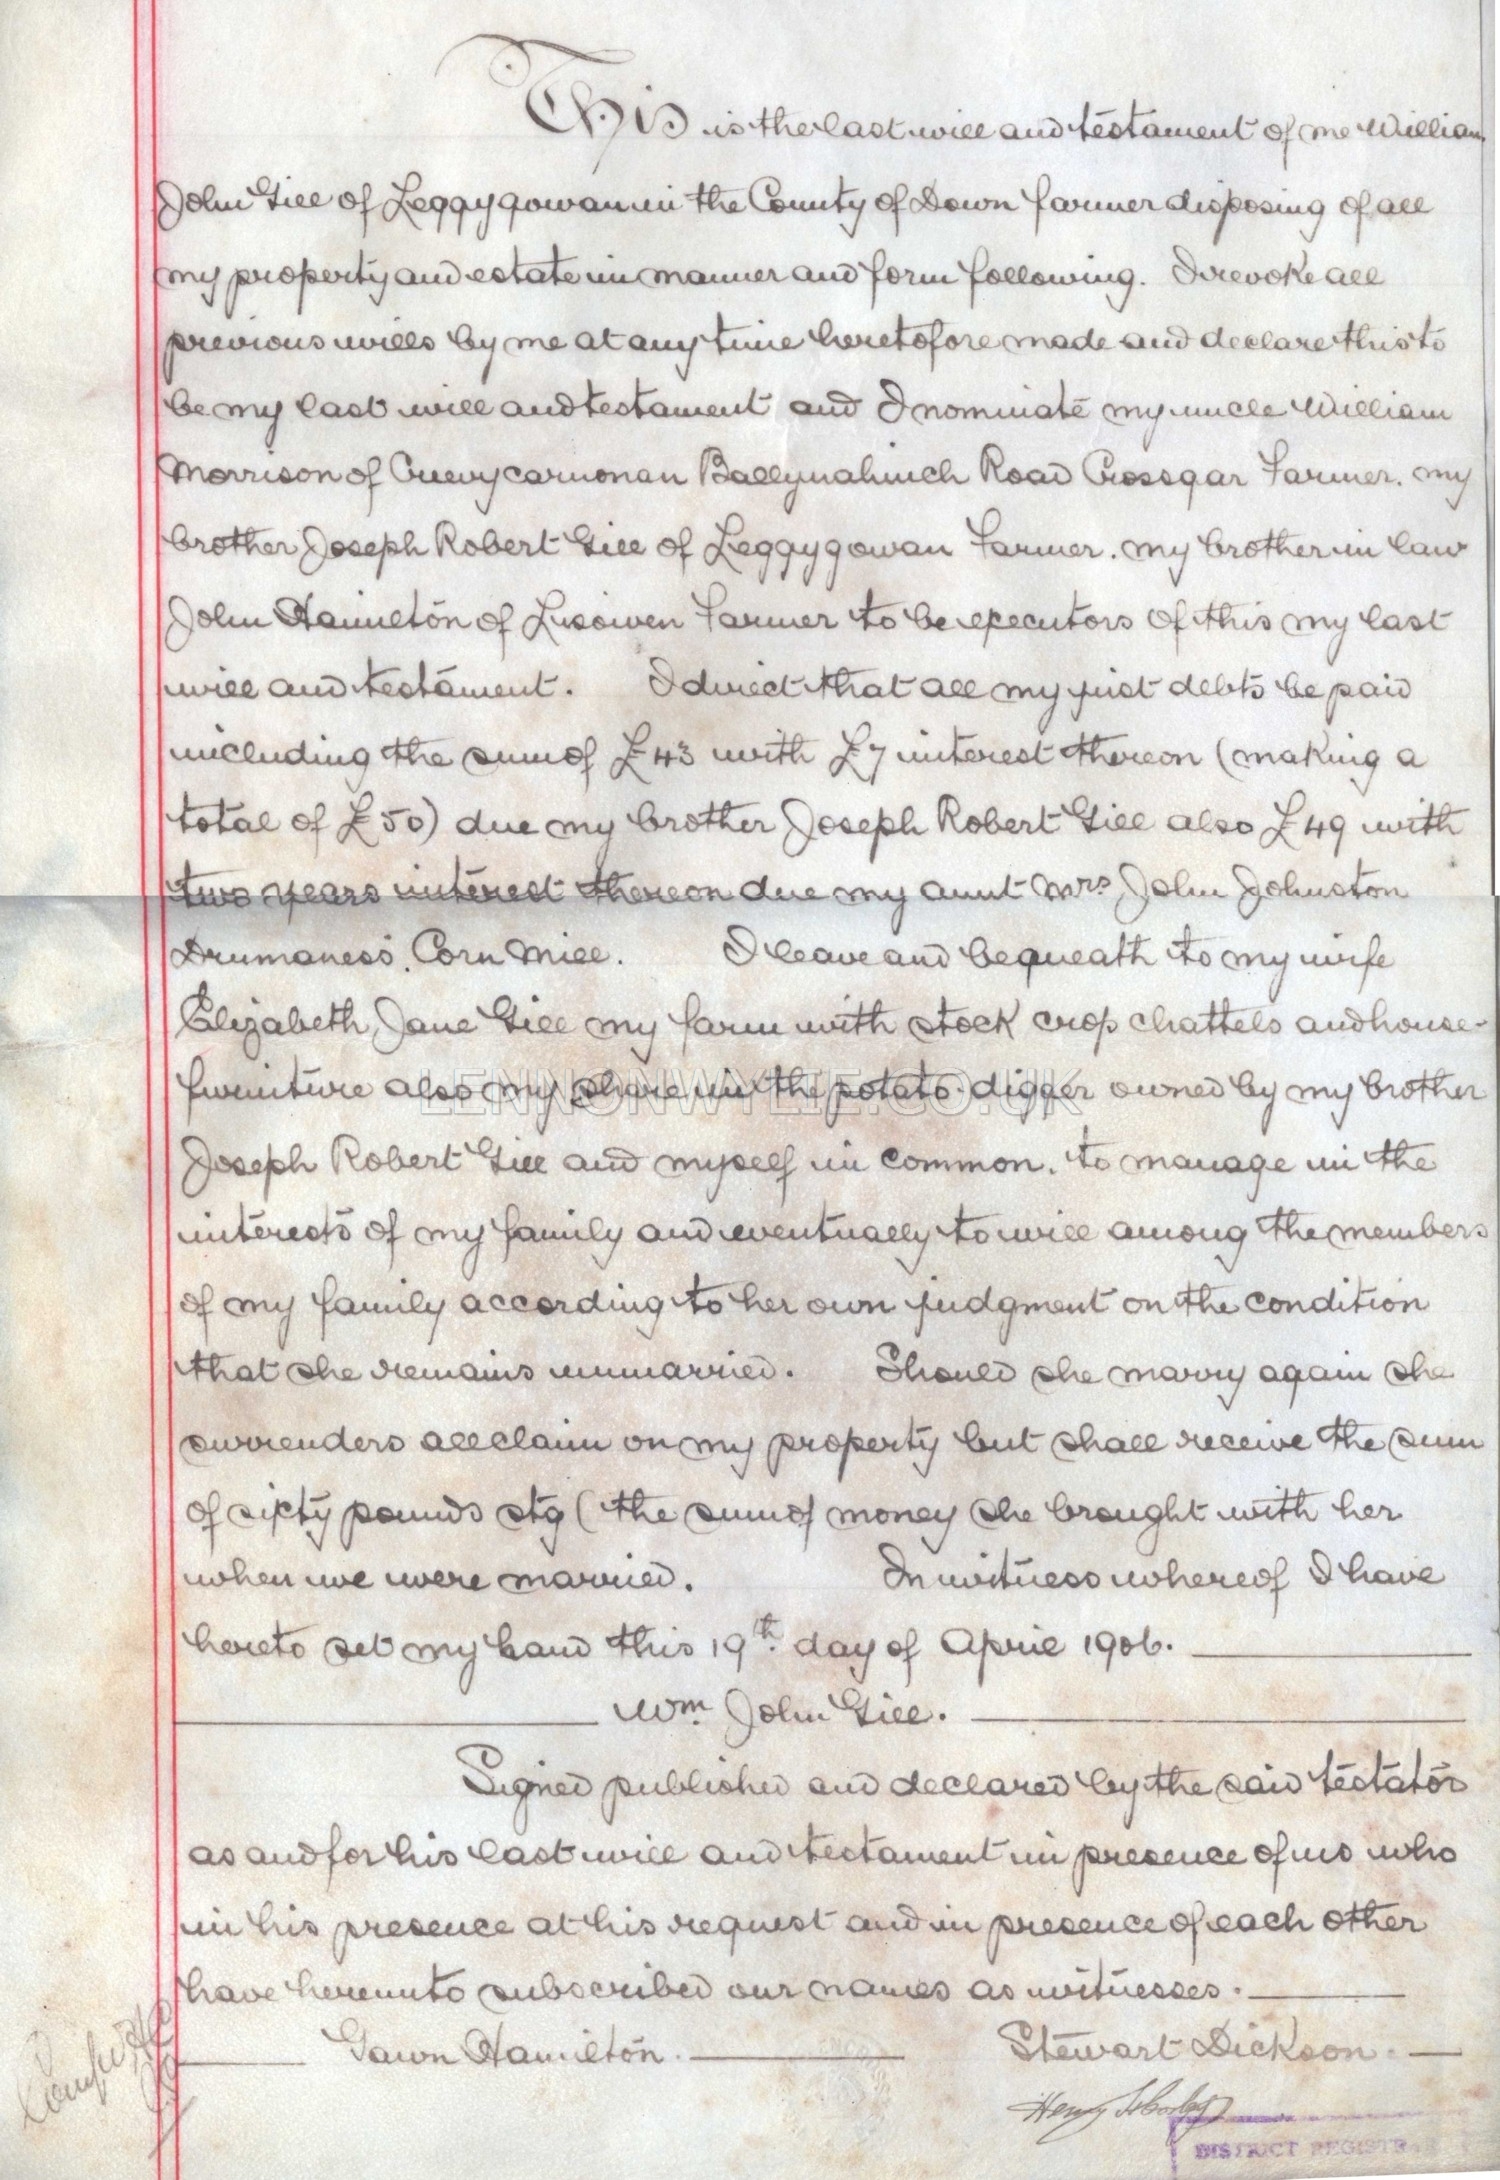 This is the last will and testament of me William
John Gill of Leggygowan in the County of Down farmer disposing of all
my property and estate in manner and form following. I revoke all
previous wills by me at any time heretofore made and declare this to
be my last will and testament and I nominate my uncle William
Morrison of Creevycarnonan Ballynahinch Road Crossgar Farmer. my
brother Joseph Robert Gill of Leggygowan Farmer. my brother in law
John Hamilton of Lisowen Farmer to be executors of this my last
will and testament. I direct that all my just debts be paid
including the sum of £43 with £7 interest thereon (making a
total of £50) due my brother Joseph Robert Gill also £49 with
two years interest thereon due my aunt Mrs John Johnston
Drumaness. Corn Mill. I leave and bequeath to my wife
Elizabeth Jane Gill my farm with stock crop chattels and house-
furniture also my share in the potato-digger owned by my brother
LENNONWYLIE.CO.UK
Joseph Robert Gill and myself in common. to manage in the
interests of my family and eventually to will among the members
of my family according to her own judgment on the condition
that she remains unmarried. Should she marry again she
surrenders all claim on my property but shall receive the sum
of sixty pounds stg (the sum of money she brought with her
when we were married. In witness whereof I have
hereto set my hand this 19th day of April 1906.
Wm John Gill.
Signed published and declared by the said testator
as and for his last will and testament in presence of us who
in his presence at his request and in presence of each other
have hereunto subscribed our names as witnesses.
Gawn Hamilton. Stewart Dickson.
Henry
DISTRICT REGISTR